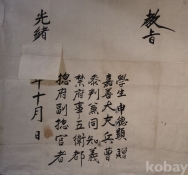 教旨
學生申德顯贈
嘉善大夫兵曹
參判兼同知義
禁府事五衛都
摠府副摠管者
光緖
年十月 日
kobay